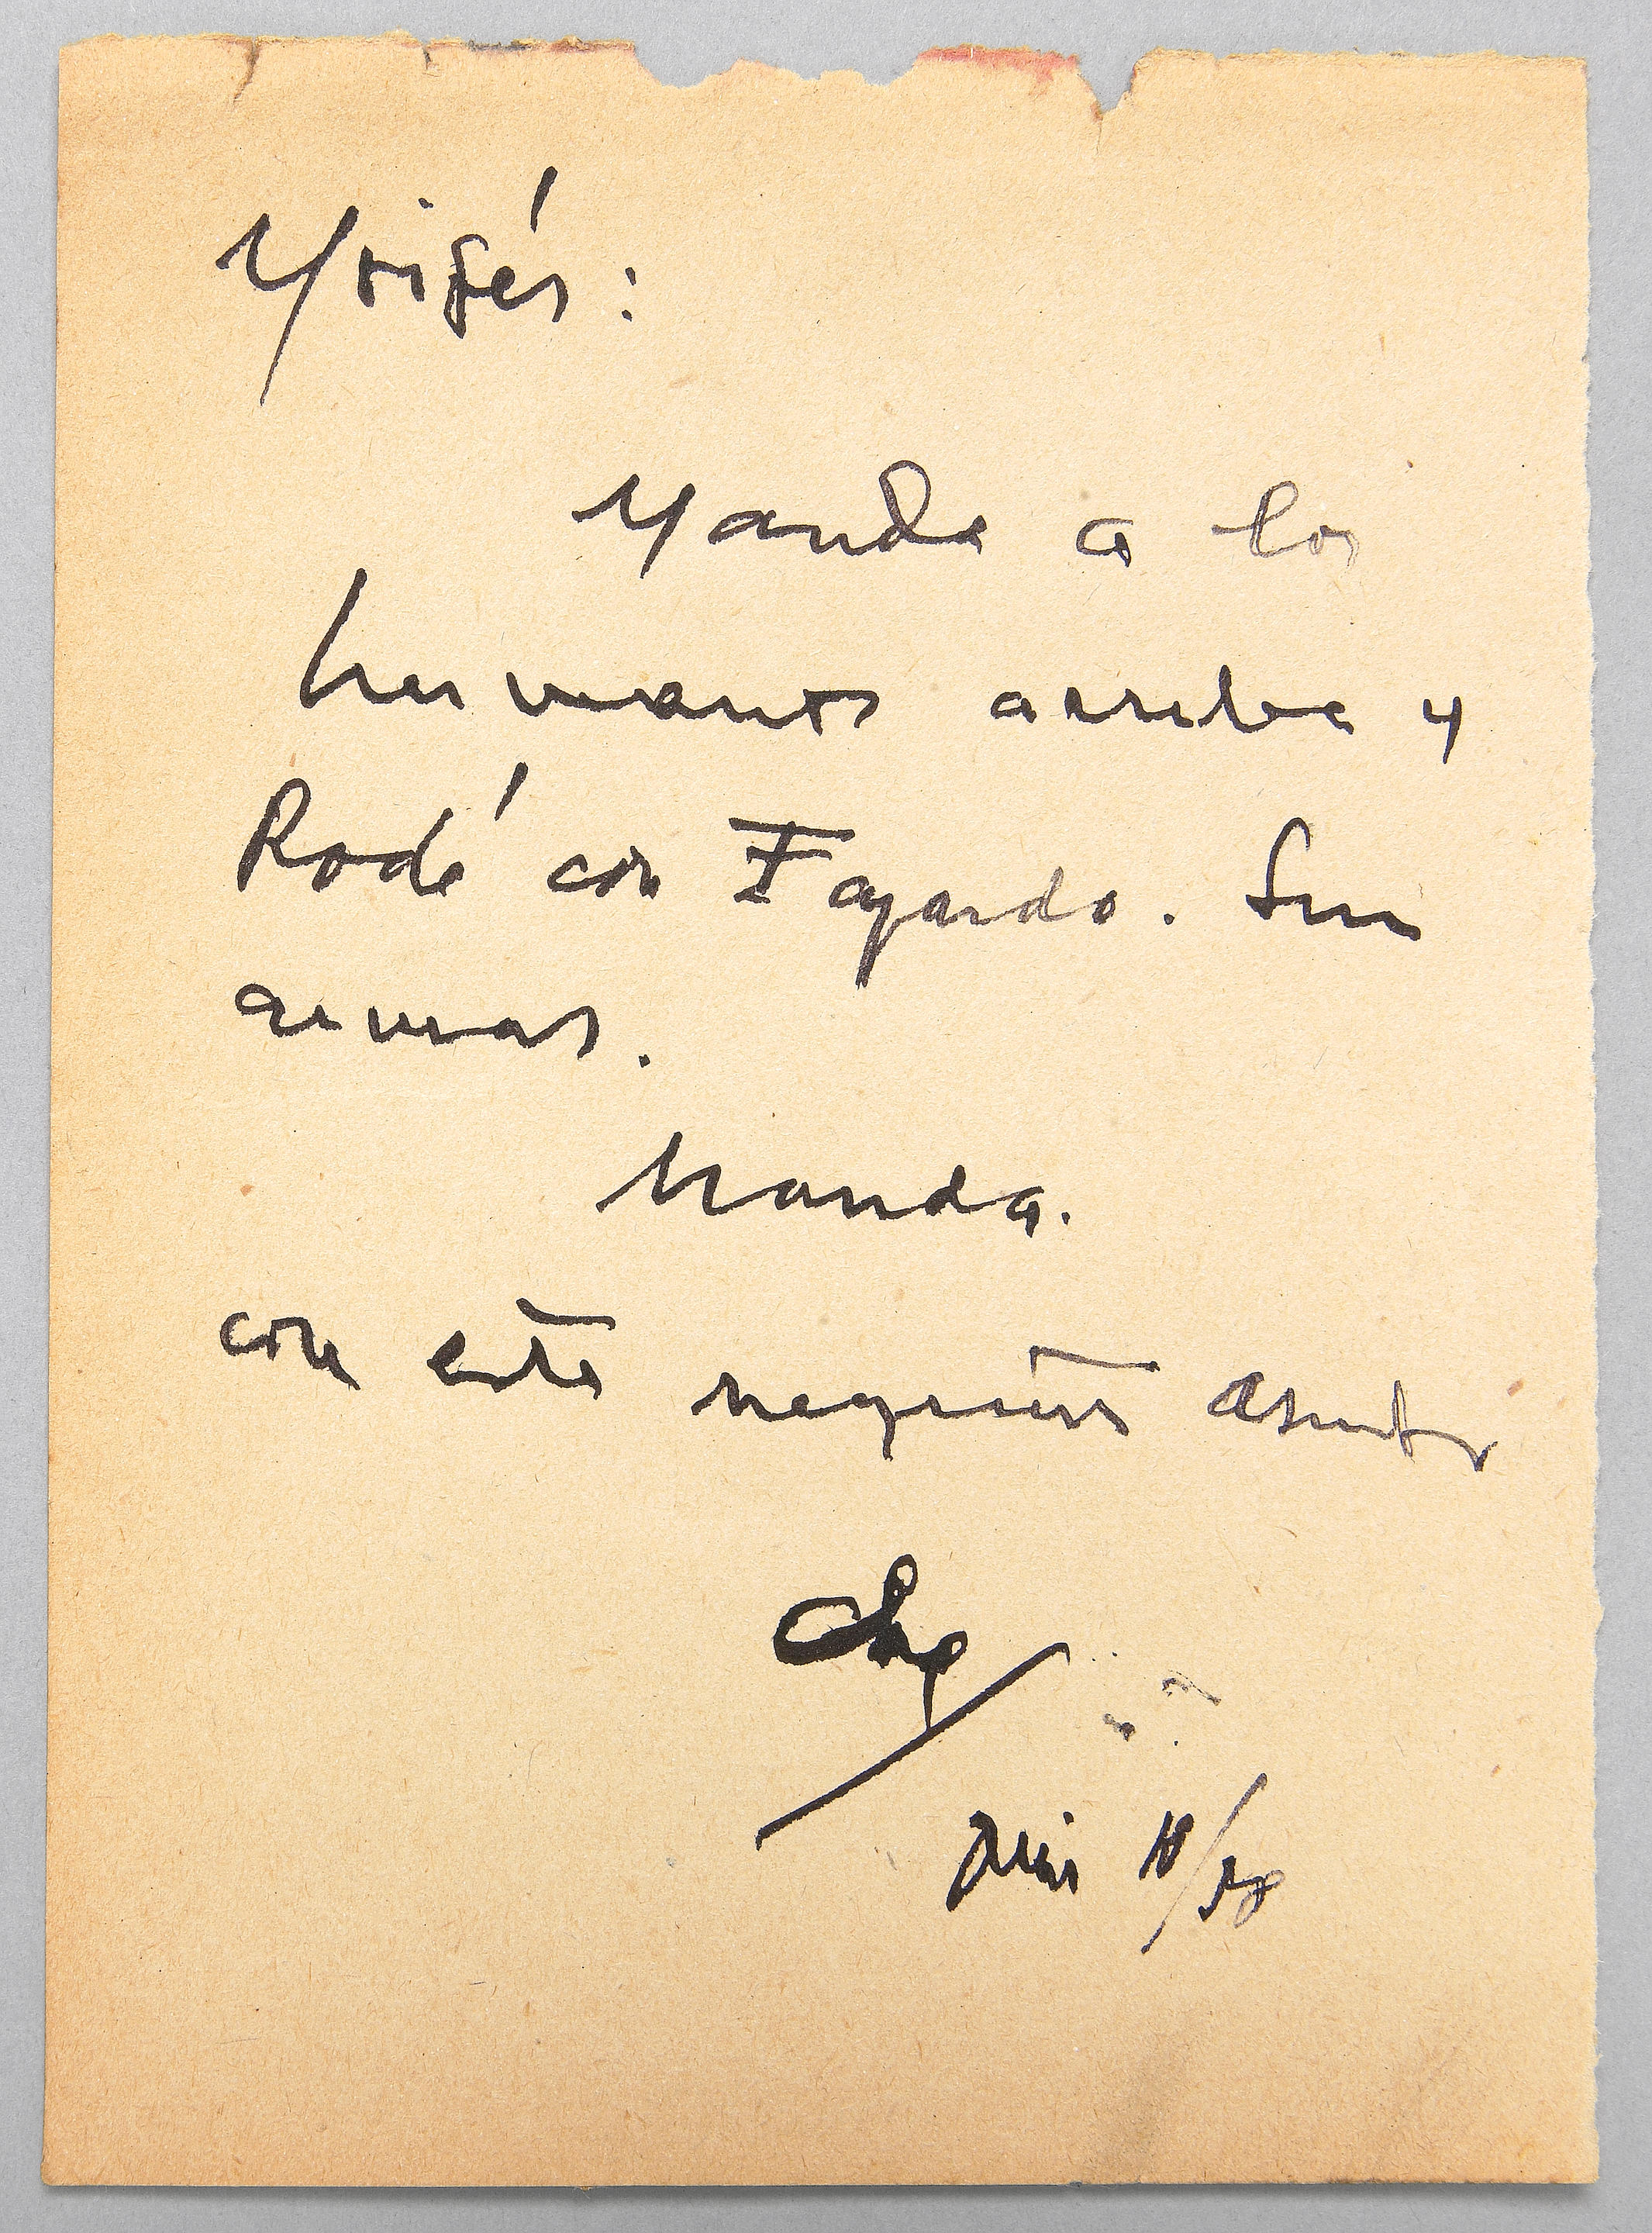 Moisés:
Manda a los
hermanos arriba y
Rodé con Fajardo. Sin
armas.
Manda.
con este asunto
Che
Junio 18/58